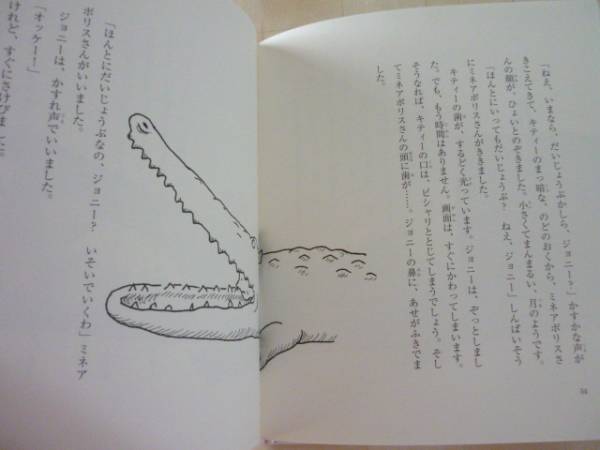 「ねえ、いまなら、だいじょうぶかしら、ジョニー？」かすかな声が
きこえてきて、キティーのまっ暗な、のどのおくから、ミネアポリスさ
んの顔が、ひょいとのぞきました。小さくてまんまるい、月のようです。
「ほんとにいってもだいじょうぶ？　ねえ、ジョニー」しんぱいそう
にミネアポリスさんがききました。
キティーの歯が、するどく光っています。ジョニーは、ぞっとしまし
た。でも、もう時間はありません。画面は、すぐにかわってしまいます。
そうなれば、キティーの口は、ピシャリととじてしまうでしょう。そし
てミネアポリスさんの頭に歯が……。ジョニーの鼻に、あせがふきでま
した。
94
「ほんとにだいじょうぶなの、ジョニー？　いそいでいくわ」ミネア
ポリスさんがいいました。
ジョニーは、かすれ声でいいました。
「オッケー！」
けれど、すぐにさけびました